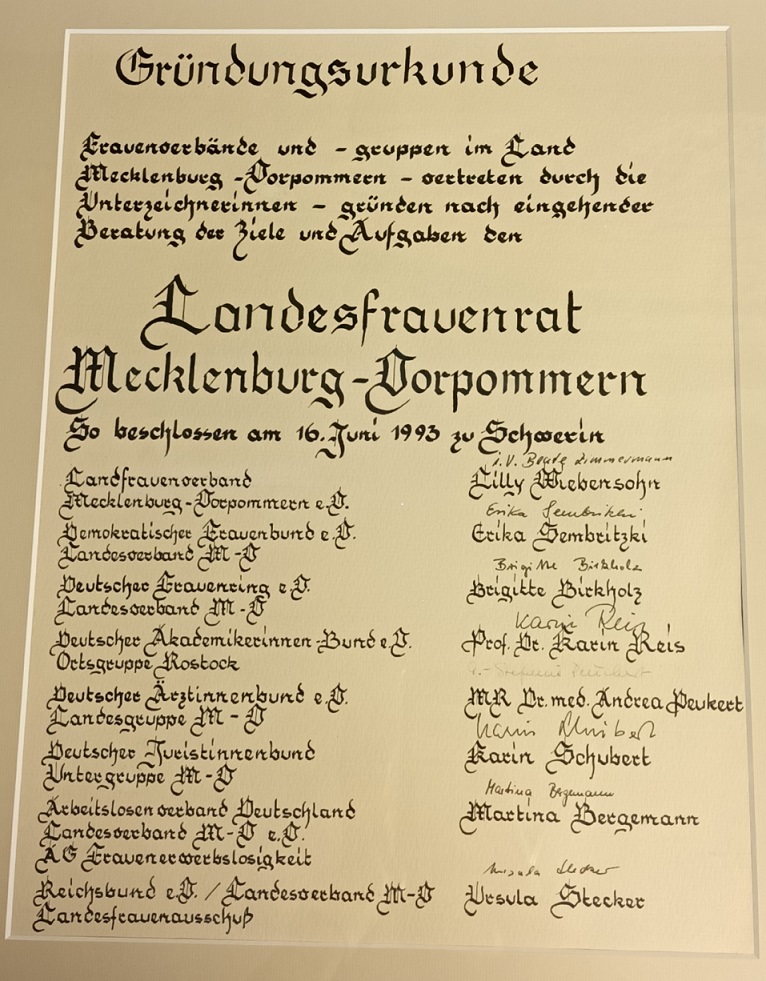 Gründungsurkunde
Frauenverbände und - gruppen im Land
Mecklenburg - Vorpommern - vertreten durch die
Unterzeichnerinnen - gründen nach eingehender
Beratung der Ziele und Aufgaben den
Landesfrauenrat
Mecklenburg - Vorpommern
So beschlossen am 16. Juni 1993 zu Schwerin
i.V. Beate Zimmermann
Landfrauenverband
Mecklenburg-Vorpommern e.V.
Lilly Wiebensohn
Erika Sembritzki
Demokratischer Frauenbund e.V.
Landesverband M-V
Erika Sembritzki
Brigitte Birkholz
Deutscher Frauenring e.V.
Landesverband M-V
Brigitte Birkholz
Karin Reis
Deutscher Akademikerinnen-Bund e.V.
Ortsgruppe Rostock
Prof. Dr. Karin Reis
Deutscher Ärztinnenbund e.V.
Landesgruppe M - V
MR Dr. med. Andrea Peukert
Karin Schubert
Deutscher Juristinnenbund
Untergruppe M-V
Karin Schubert
Martina Bergemann
Arbeitslosenverband Deutschland
Landesverband M-V e.V.
AG Frauenerwerbslosigkeit
Martina Bergemann
Ursula Stecker
Reichsbund e.V. / Landesverband M-V
Landesfrauenausschuß
Ursula Stecker